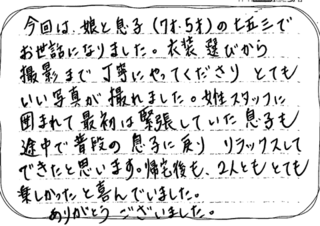 今回は、娘と息子(7才、5才)の七五三で
お世話になりました。衣装選びから
撮影まで丁寧にやってくださり とても
いい写真が撮れました。女性スタッフに
囲まれて最初は緊張していた息子も
途中で普段の息子に戻り リラックスして
できたと思います。帰宅後も、2人ともとても
楽しかったと喜んでいました。
ありがとうございました。